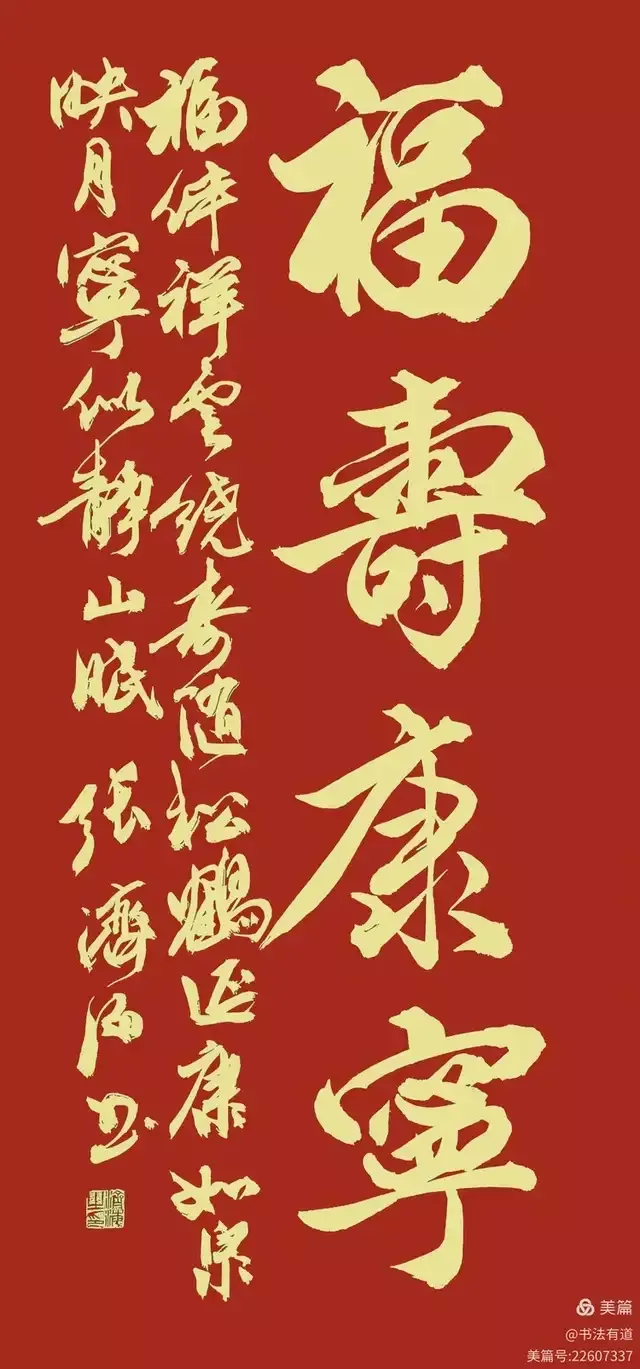 福壽康寧
福伴祥雲繞壽隨松鶴延康如泉
映月寧似靜山眠 張濟海书
美篇
@书法有道
美篇号:22607337